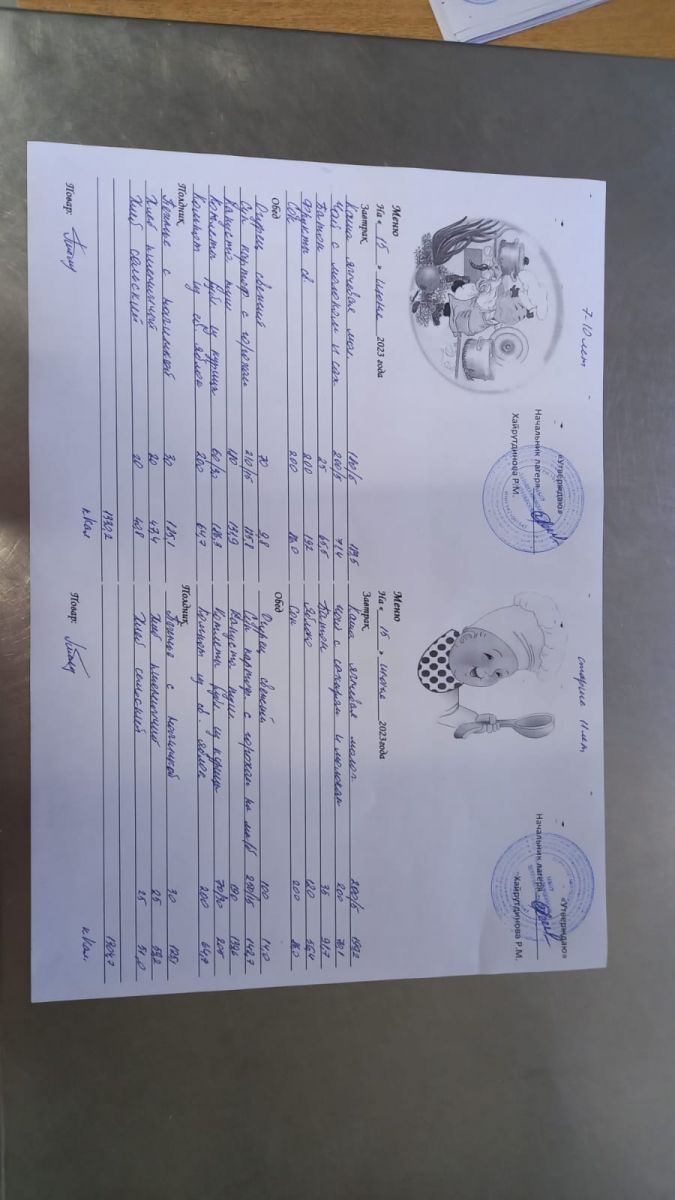 7-10 лет
«Утверждаю»
Начальник лагеря
Хайрутдинова Р.М.
Меню
На « 15 » июня 2023 года
Завтрак
Каша ячневая мол
Чай с молоком и сах 200/15 71,4
Батон 25 65,5
Фрукты св 200
Сок 200
Обед
Огурец свежий 70 9,8
Суп картоф с горохом 210/15
Капуста туш
Котлета руб из курицы 60/30
Компот из св яблок 200 64,7
Полдник
Печенье с начинкой 30 125,1
Хлеб пшеничный 20 47,4
Хлеб сельский 20 40,8
ккал
Повар:
старше 11 лет
«Утверждаю»
Начальник лагеря
Хайрутдинова Р.М.
Меню
На « 15 » июня 2023года
Завтрак
Каша ячневая молоч 200/5
Чай с сахаром и молоком 200
Батон 35 91,7
Яблоко
Сок 200
Обед
Огурец свежий 100 14,0
Суп картоф с горохом на
Капуста туш
Котлета руб из курицы 70/30
Компот из св. яблок 200 64,7
Полдник
Печенье с начинкой 30
Хлеб пшеничный 25 59,2
Хлеб сельский 25 51,0
ккал.
Повар: